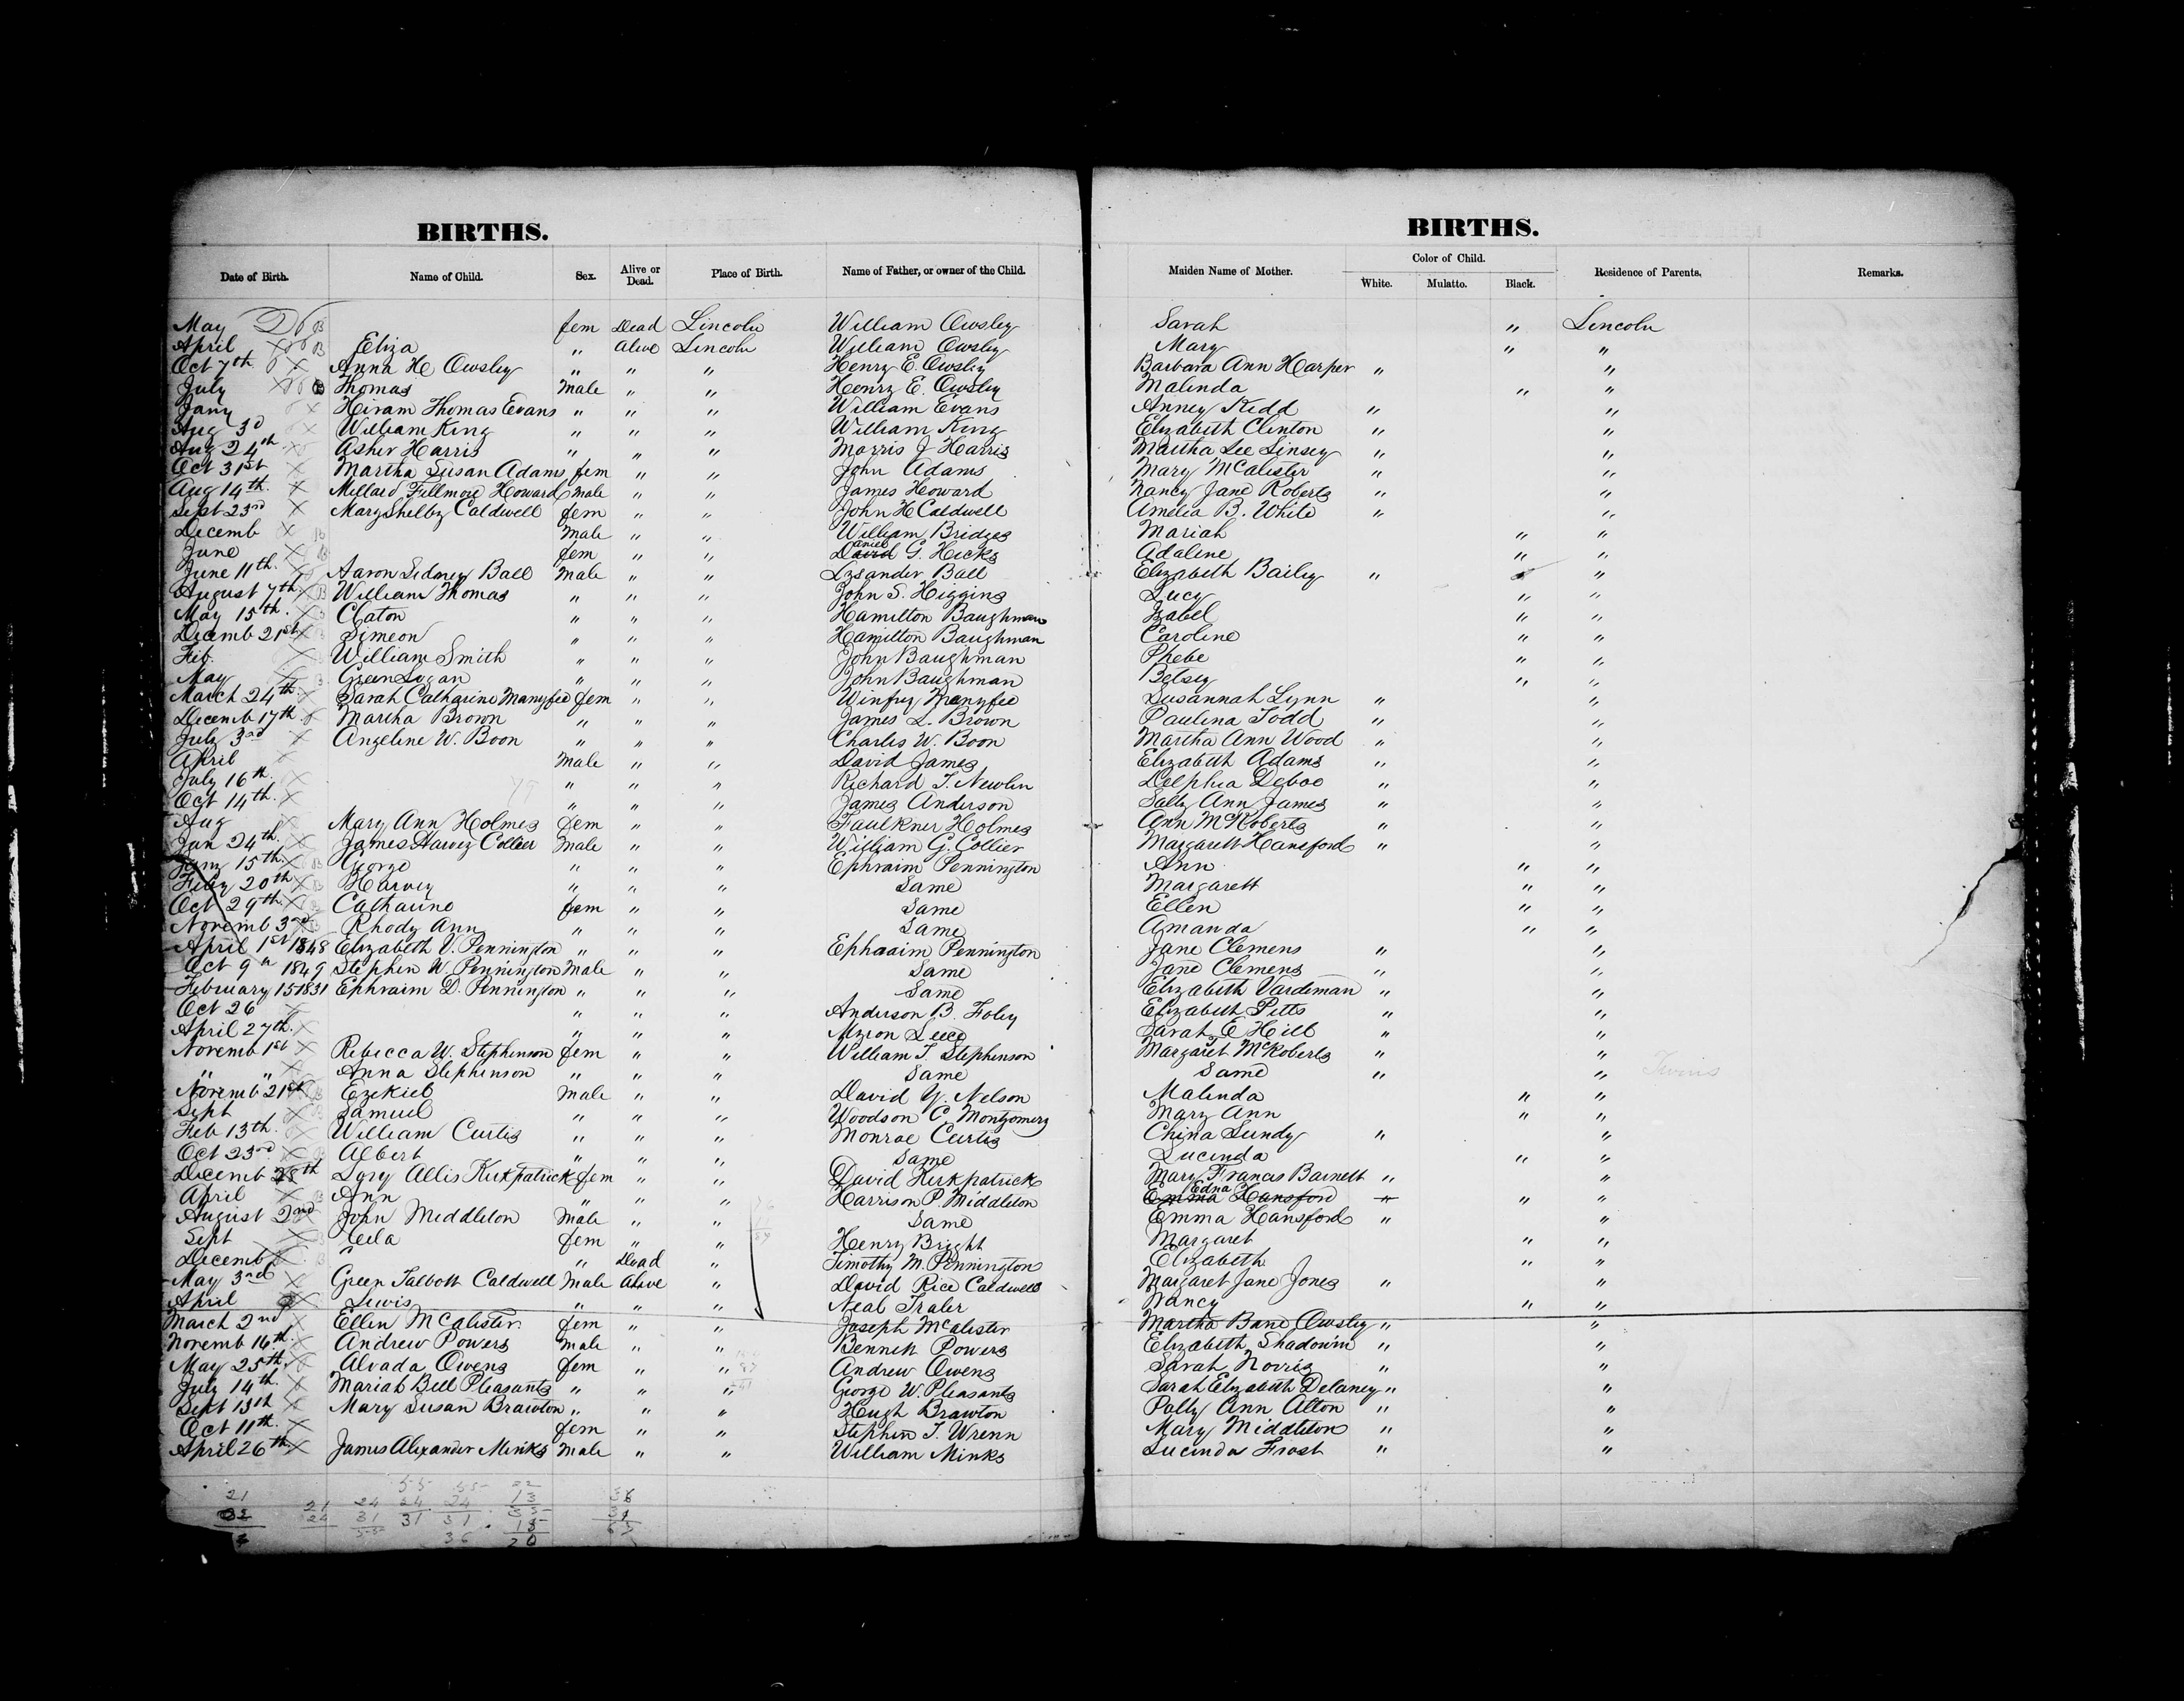 BIRTHS. BIRTHS.
Date of Birth. Name of Child. Sex. Alive or Dead. Place of Birth. Name of Father, or owner of the Child. Maiden Name of Mother. Color of Child. White. Mulatto. Black. Residence of Parents. Remarks.
May fem Dead Lincoln William Owsley Sarah " Lincoln
April Eliza " Alive Lincoln William Owsley Mary " "
Oct 7th Anna H Owsley " " " Henry E. Owsley Barbara Ann Harper " "
July Thomas Male " " Henry E. Owsley Malinda " "
Jany Hiram Thomas Evans " " " William Evans Anney Kidd " "
Aug 3d William King " " " William King Elizabeth Clinton " "
Aug 24th Asher Harris " " " Morris J Harris Martha Lee Linsey " "
Oct 31st Martha Susan Adams fem " " John Adams Mary McAlister " "
Aug 14th. Millard Fillmore Howard Male " " James Howard Nancy Jane Roberts " "
Sept 23rd Mary Shelby Caldwell fem " " John H Caldwell Amelia B. White " "
Decemb Male " " William Bridges Mariah " "
June fem " " Daniel G. Hicks Adaline " "
June 11th. Aaron Sidney Ball Male " " Lysander Ball Elizabeth Bailey " "
August 7th William Thomas " " " John S. Higgins Lucy " "
May 15th. Claton " " " Hamilton Baughman Izabel " "
Decemb 21st Simeon " " " Hamilton Baughman Caroline " "
Feb. William Smith " " " John Baughman Phebe " "
May Green Logan " " " John Baughman Betsey " "
March 24th. Sarah Catharine Manyfee fem " " Winfrey Manyfee Susannah Lynn " "
Decemb 17th Martha Brown " " " James L. Brown Paulina Todd " "
July 3rd Angeline W. Boon " " " Charles W. Boon Martha Ann Wood " "
April Male " " David James Elizabeth Adams " "
July 16th. " " " Richard T. Newlin Delphia Deboe " "
Oct 14th. " " " James Anderson Sally Ann James " "
Aug Mary Ann Holmes fem " " Faulkner Holmes Ann McRoberts " "
Jan 24th. James Harvey Collier Male " " William G. Collier Margarett Hansford " "
Jany 15th. George " " " Ephraim Pennington Ann " "
Feby 20th Harvey " " " Same Margarett " "
Oct 29th. Catharine fem " " Same Ellen " "
Novemb 3rd Rhody Ann " " " Same Amanda " "
April 1st 1848 Elizabeth V. Pennington " " " Ephraim Pennington Jane Clemens " "
Oct 9th 1849 Stephen W. Pennington Male " " Same Jane Clemens " "
February 15 1831 Ephraim D. Pennington " " " Same Elizabeth Vardeman " "
Oct 26 " " " Anderson B. Foley Elizabeth Pitts " "
April 27th. " " " Sarah E Hill " "
Novemb 1st Rebecca W. Stephenson fem " " William T. Stephenson Margaret McRoberts " "
" " Anna Stephenson " " " Same Same " " Twins
Novemb 21st Ezekiel Male " " David Y. Nelson Malinda " "
Sept Samuel " " " Woodson C. Montgomery Mary Ann " "
Feb 13th. William Curtis " " " Monroe Curtis China Lundy " "
Oct 23rd. Albert " " " Same Lucinda " "
Decemb 28th Allis Kirkpatrick fem " " David Kirkpatrick Mary Francis Barnett " "
April Ann " " " Harrison P. Middleton Edna Emma Hansford " " "
August 2nd John Middleton Male " " Same Emma Hansford " "
Sept Ceila fem " " Henry Bright Margaret " "
Decemb " Dead " Timothy M. Pennington Elizabeth " "
May 3rd Green Talbott Caldwell Male Alive " David Rice Caldwell Margaret Jane Jones " "
April Lewis " " " Neal Traler Nancy " "
March 2nd Ellen McAlister fem " " Joseph McAlister Martha Bane Owsley " "
Novemb 16th. Andrew Powers Male " " Bennett Powers Elizabeth Shadowin " "
May 25th. Alvada Owens fem " " Andrew Owens Sarah Norris " "
July 14th. Mariah Bell Pleasants " " " George W. Pleasants Sarah Elizabeth Delaney " "
Sept 13th Mary Susan Brawton " " " Hugh Brawton Polly Ann Alton " "
Oct 11th. fem " " Stephen T. Wrenn Mary Middleton " "
April 26th James Alexander Minks Male " " William Minks Lucinda Frost " "